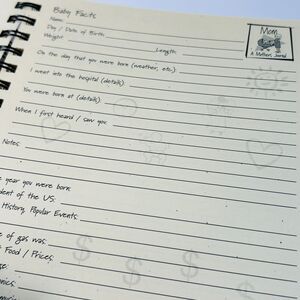 Baby Facts
Name:
Day / Date of Birth
Weight Length:
Mom
A Mother's Journal
On the day that you were born (weather, etc.)
I went into the hospital (details)
You were born at (details)
When I first heard / saw you
Notes:
year you were born
dent of the US:
History, Popular Events:
of gas was:
Food / Prices: